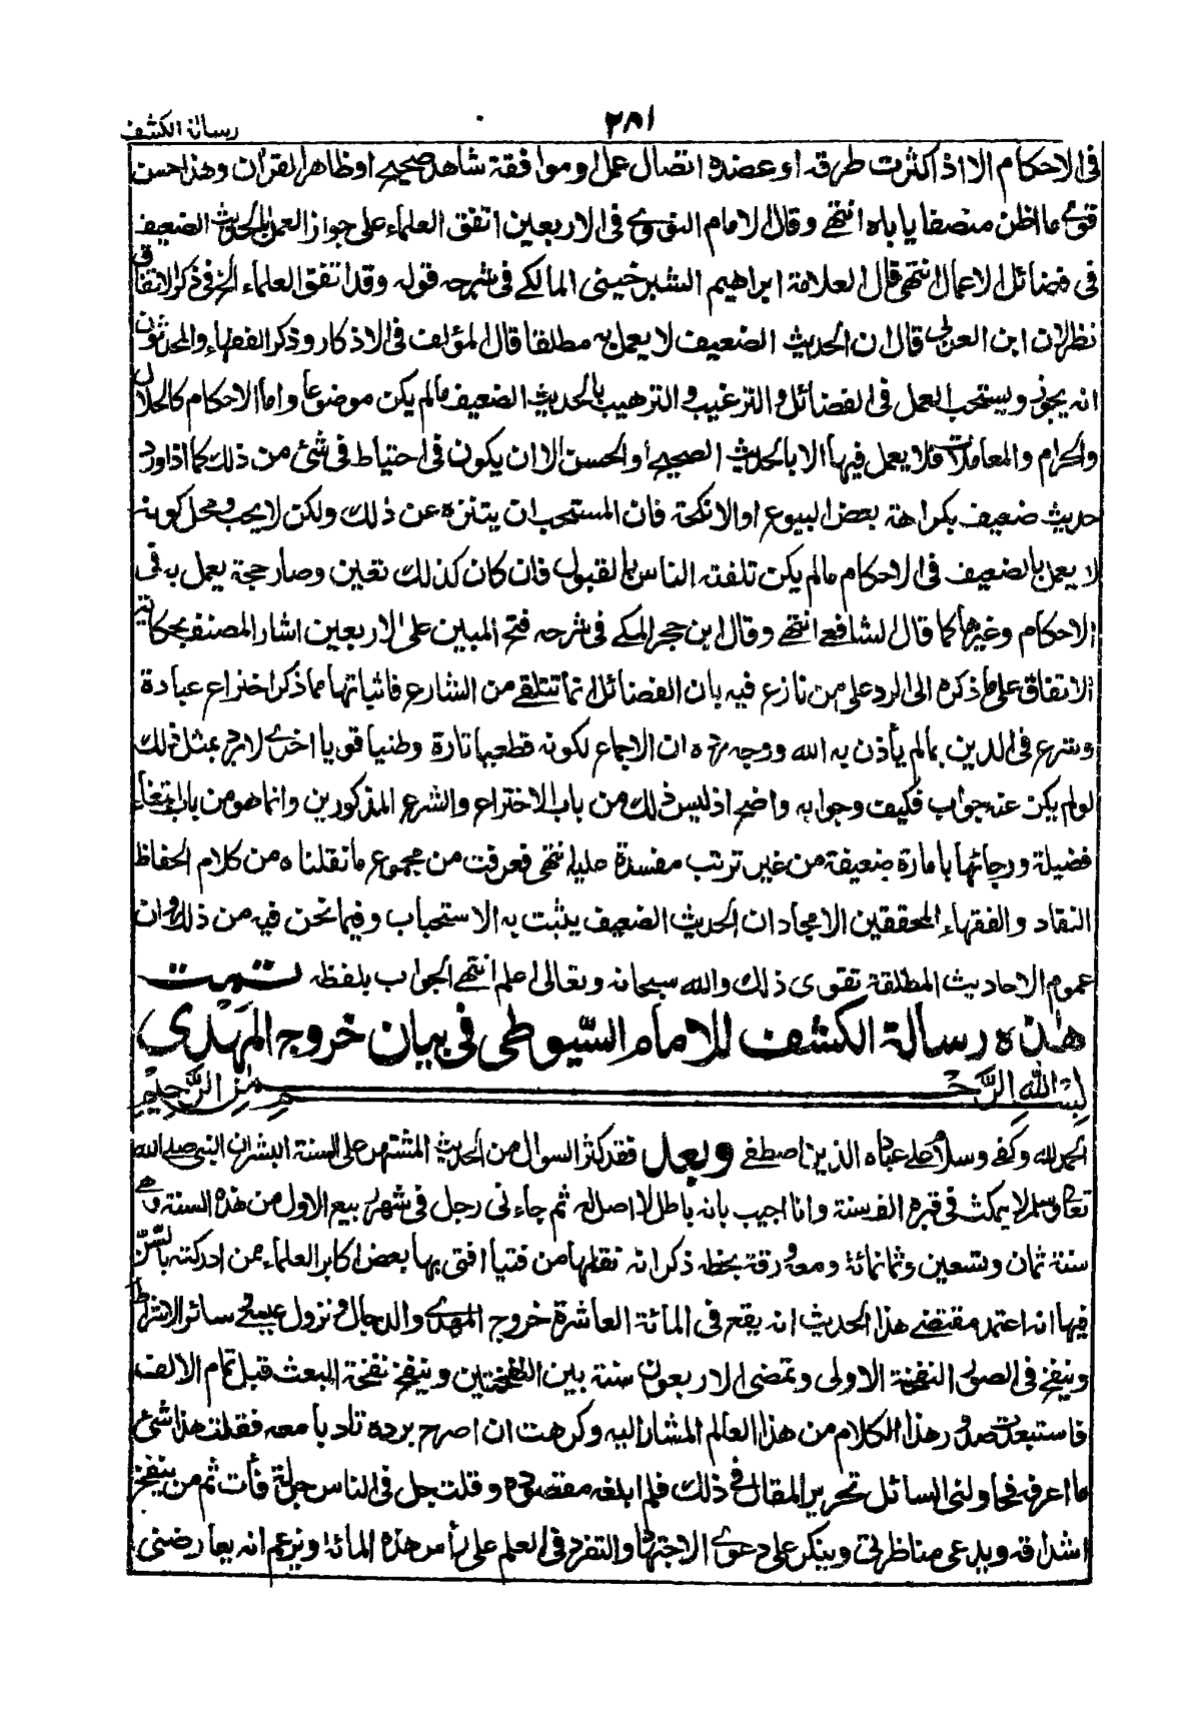 رسالة الكشف
٢٨١
في الاحكام الا اذا كثرت طرقه او عضده اتصال عمل او موافقة شاهد صحيح او ظاهر القرآن وهذا حسن
قوي ما اظن منصفا ياباه انتهى وقال الامام النووي في الاربعين اتفق العلماء على جواز العمل بالحديث الضعيف
في فضائل الاعمال انتهى قال العلامة ابراهيم الشبرخيتي المالكي في شرحه قوله وقد اتفق العلماء الخ في ذكر الاتفاق
نظر لان ابن العربي قال ان الحديث الضعيف لا يعمل به مطلقا قال المؤلف في الاذكار وذكر الفقهاء والمحدثون
انه يجوز ويستحب العمل في الفضائل والترغيب والترهيب بالحديث الضعيف مالم يكن موضوعا واما الاحكام كالحلال
والحرام والمعاملات فلا يعمل فيها الا بالحديث الصحيح او الحسن الا ان يكون في احتياط في شئ من ذلك كما اذا ورد
حديث ضعيف بكراهة بعض البيوع او الانكحة فان المستحب ان يتنزه عن ذلك ولكن لا يجب ومحل كونه
لا يعمل بالضعيف في الاحكام مالم يكن تلقته الناس بالقبول فان كان كذلك تعين وصار حجة يعمل به في
الاحكام وغيرها كما قال الشافعي انتهى وقال ابن حجر المكي في شرحه فتح المبين على الاربعين اشار المصنف بحكاية
الاتفاق على ما ذكره الى الرد على من نازع فيه بان الفضائل انما تتلقى من الشارع فاثباتها مما ذكر اختراع عبادة
وشرع في الدين بمالم يأذن به الله ووجه رده ان الاجماع لكونه قطعيا تارة وظنيا قويا اخرى لا يرد بمثل ذلك
لو لم يكن عنه جواب فكيف وجوابه واضح اذ ليس ذلك من باب الاختراع والشرع المذكورين وانما هو من باب ابتغاء
فضيلة ورجائها بامارة ضعيفة من غير ترتب مفسدة عليه انتهى فعرفت من مجموع ما نقلناه من كلام الحفاظ
النقاد والفقهاء المحققين الامجاد ان الحديث الضعيف يثبت به الاستحباب وفيما نحن فيه من ذلك وان
عموم الاحاديث المطلقة تقوى ذلك والله سبحانه وتعالى اعلم انتهى الجواب بلفظه تمت
هذه رسالة الكشف للامام السيوطى في بيان خروج المهدى
بسم الله الرحمن الرحيم
الحمد لله وكفى وسلام على عباده الذين اصطفى وبعد فقد كثر السوال من الحديث المشتهر على السنة البشر ان النبي صلى الله
تعالى وسلم لا يمكث في قبره الف سنة وانا اجيب بانه باطل لا اصل له ثم جاءنى رجل في شهر ربيع الاول من هذه السنة وهى
سنة ثمان وتسعين وثمانمائة ومعه ورقة بخطه ذكر انه نقلها من فتيا افتى بها بعض اكابر العلماء ممن ادركته بالسن
فيها انه اعتمد مقتضى هذا الحديث انه يقع في المائة العاشرة خروج المهدي والدجال ونزول عيسى وسائر الاشراط
وينفخ في الصور النفخة الاولى وتمضى الاربعون سنة بين النفختين وينفخ نفخة البعث قبل تمام الالف
فاستبعدت صدور هذا الكلام من هذا العالم المشار اليه وكرهت ان اصرح برده تادبا معه فقلت هذا شئ
ما اعرفه فحاولنى السائل تحرير المقال في ذلك فلم ابلغه مقصوده وقلت جل في الناس جولة فأت ثم من ينفخ
اشداقه ويدعى مناظرتى وينكر على دعوى الاجتهاد والتفرد في العلم على رأس هذه المائة ويزعم انه يعارضنى